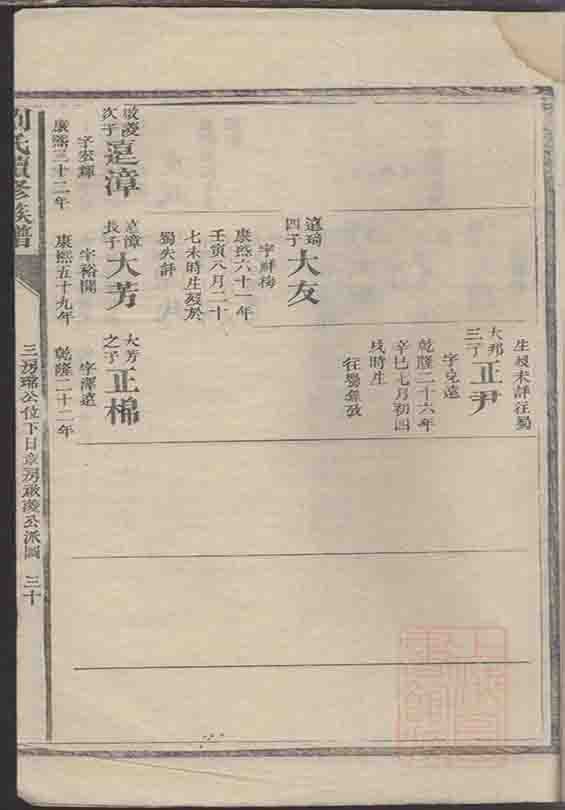 生歿未詳往蜀
大邦
三子
正尹
字克遠
乾隆二十六年
辛巳七月初四
戌時生
往蜀無攷
遠琦
四子
大友
字祥梅
康熙六十一年
壬寅八月二十
七未時生歿於
蜀失詳
啟菱
次子
遠漳
字宏輝
康熙三十二年
遠漳
長子
大芳
字裕開
康熙五十九年
大芳
之子
正棉
字澤遠
乾隆二十二年
劉氏續修族譜
三房
公位下日章房啟菱公派圖
三十